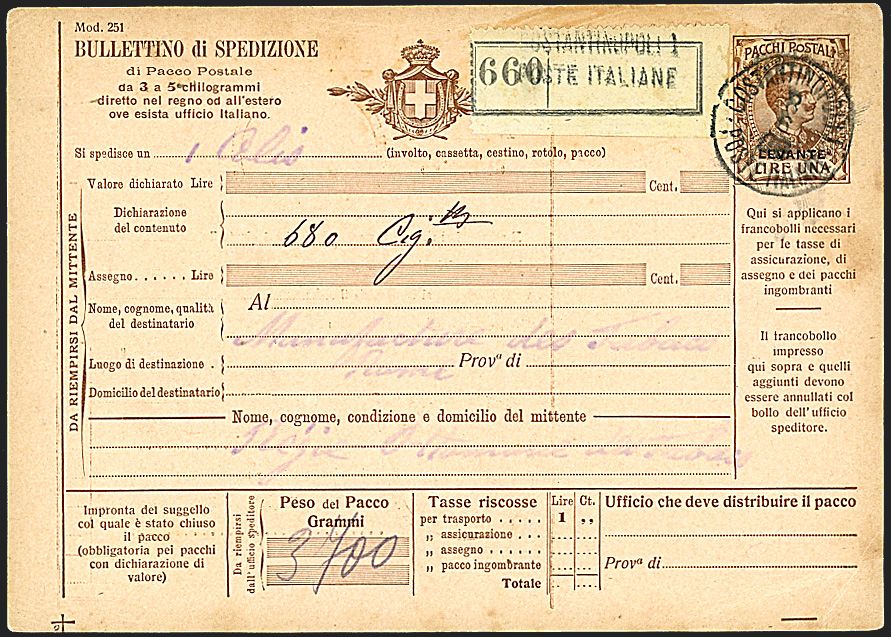 Mod. 251
BULLETTINO di SPEDIZIONE
di Pacco Postale
da 3 a 5 chilogrammi
diretto nel regno od all'estero
ove esista ufficio Italiano.
COSTANTINOPOLI 1
POSTE ITALIANE
660
PACCHI POSTALI
LEVANTE
LIRE UNA
COSTANTINOPOLI
Si spedisce un 1 Colis (involto, cassetta, cestino, rotolo, pacco)
DA RIEMPIRSI DAL MITTENTE
Valore dichiarato Lire Cent.
Dichiarazione
del contenuto
680 Cig.
Assegno...... Lire Cent.
Nome, cognome, qualità
del destinatario
Al
Manufacture des Tabacs
Luogo di destinazione . Prova di
Fiume
Domicilio del destinatario
Nome, cognome, condizione e domicilio del mittente
Régie Ottomane des Tabacs
Qui si applicano i
francobolli necessari
per le tasse di
assicurazione, di
assegno e dei pacchi
ingombranti
Il francobollo
impresso
qui sopra e quelli
aggiunti devono
essere annullati col
bollo dell'ufficio
speditore.
Impronta del suggello
col quale è stato chiuso
il pacco
(obbligatoria pei pacchi
con dichiarazione di
valore)
Da riempirsi
dall'ufficio speditore
Peso del Pacco
Grammi
3700
Tasse riscosse Lire Ct.
per trasporto ..... 1 „
„ assicurazione ..
„ assegno .....
„ pacco ingombrante
Totale
Ufficio che deve distribuire il pacco
Prova di